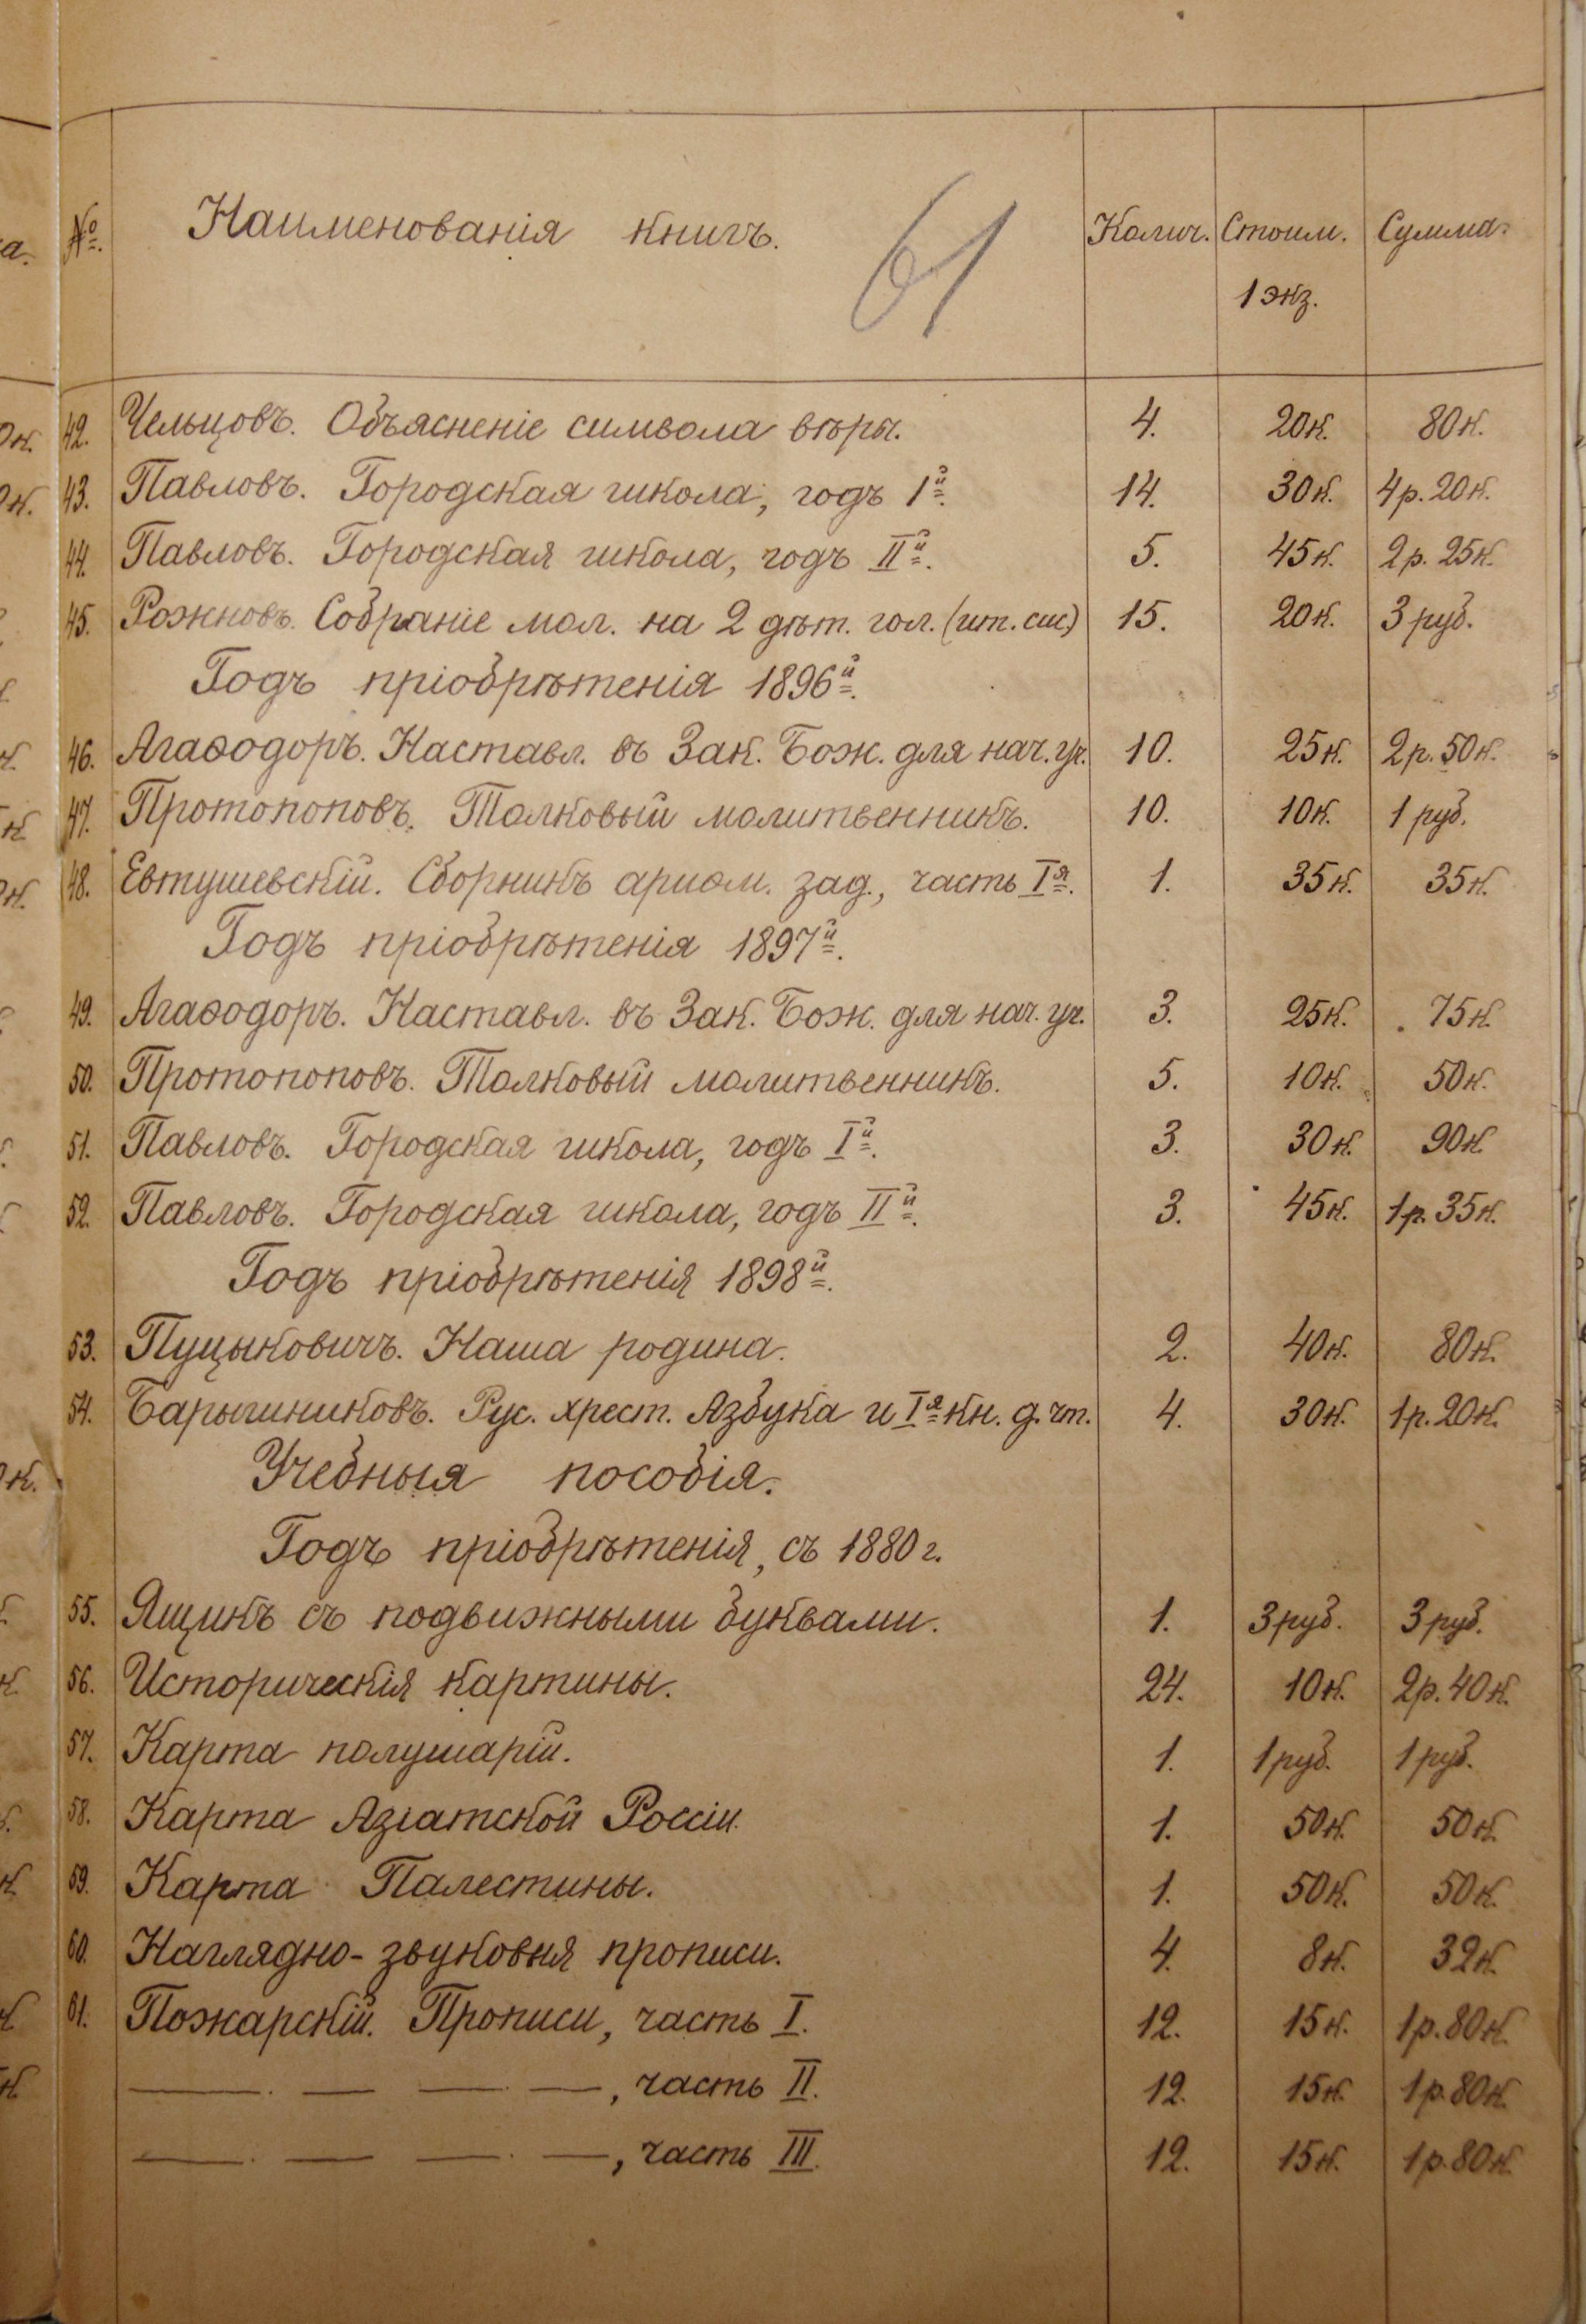 № Наименованія книгъ. Колич. Стоим. Сумма.
61
1 экз.
42. Чельцовъ. Объясненіе символа вѣры. 4. 20к. 80к.
43. Павловъ. Городская школа, годъ Iй. 14. 30к. 4р. 20к.
44. Павловъ. Городская школа, годъ IIй. 5. 45к. 2р. 25к.
45. Рожновъ. Собраніе мол. на 2 дѣт. гол. (цт. сис.) 15. 20к. 3 руб.
Годъ пріобрѣтенія 1896й.
46. Агаѳодоръ. Наставл. въ Зак. Бож. для нач. уч. 10. 25к. 2р. 50к.
47. Протопоповъ. Толковый молитвенникъ. 10. 10к. 1 руб.
48. Евтушевскій. Сборникъ ариѳм. зад., часть Iя. 1. 35к. 35к.
Годъ пріобрѣтенія 1897й.
49. Агаѳодоръ. Наставл. въ Зак. Бож. для нач. уч. 3. 25к. 75к.
50. Протопоповъ. Толковый молитвенникъ. 5. 10к. 50к.
51. Павловъ. Городская школа, годъ Iй. 3. 30к. 90к.
52. Павловъ. Городская школа, годъ IIй. 3. 45к. 1р. 35к.
Годъ пріобрѣтенія 1898й.
53. Пуцыковичъ. Наша родина. 2. 40к. 80к.
54. Барышниковъ. Рус. хрест. Азбука и Iя кн. д. чт. 4. 30к. 1р. 20к.
Учебныя пособія.
Годъ пріобрѣтенія, съ 1880 г.
55. Ящикъ съ подвижными буквами. 1. 3 руб. 3 руб.
56. Историческія картины. 24. 10к. 2р. 40к.
57. Карта полушарій. 1. 1 руб. 1 руб.
58. Карта Азіатской Россіи. 1. 50к. 50к.
59. Карта Палестины. 1. 50к. 50к.
60. Наглядно-звуковыя прописи. 4. 8к. 32к.
61. Пожарскій. Прописи, часть I. 12. 15к. 1р. 80к.
—. — — —, часть II. 12. 15к. 1р. 80к.
—. — —. —, часть III. 12. 15к. 1р. 80к.